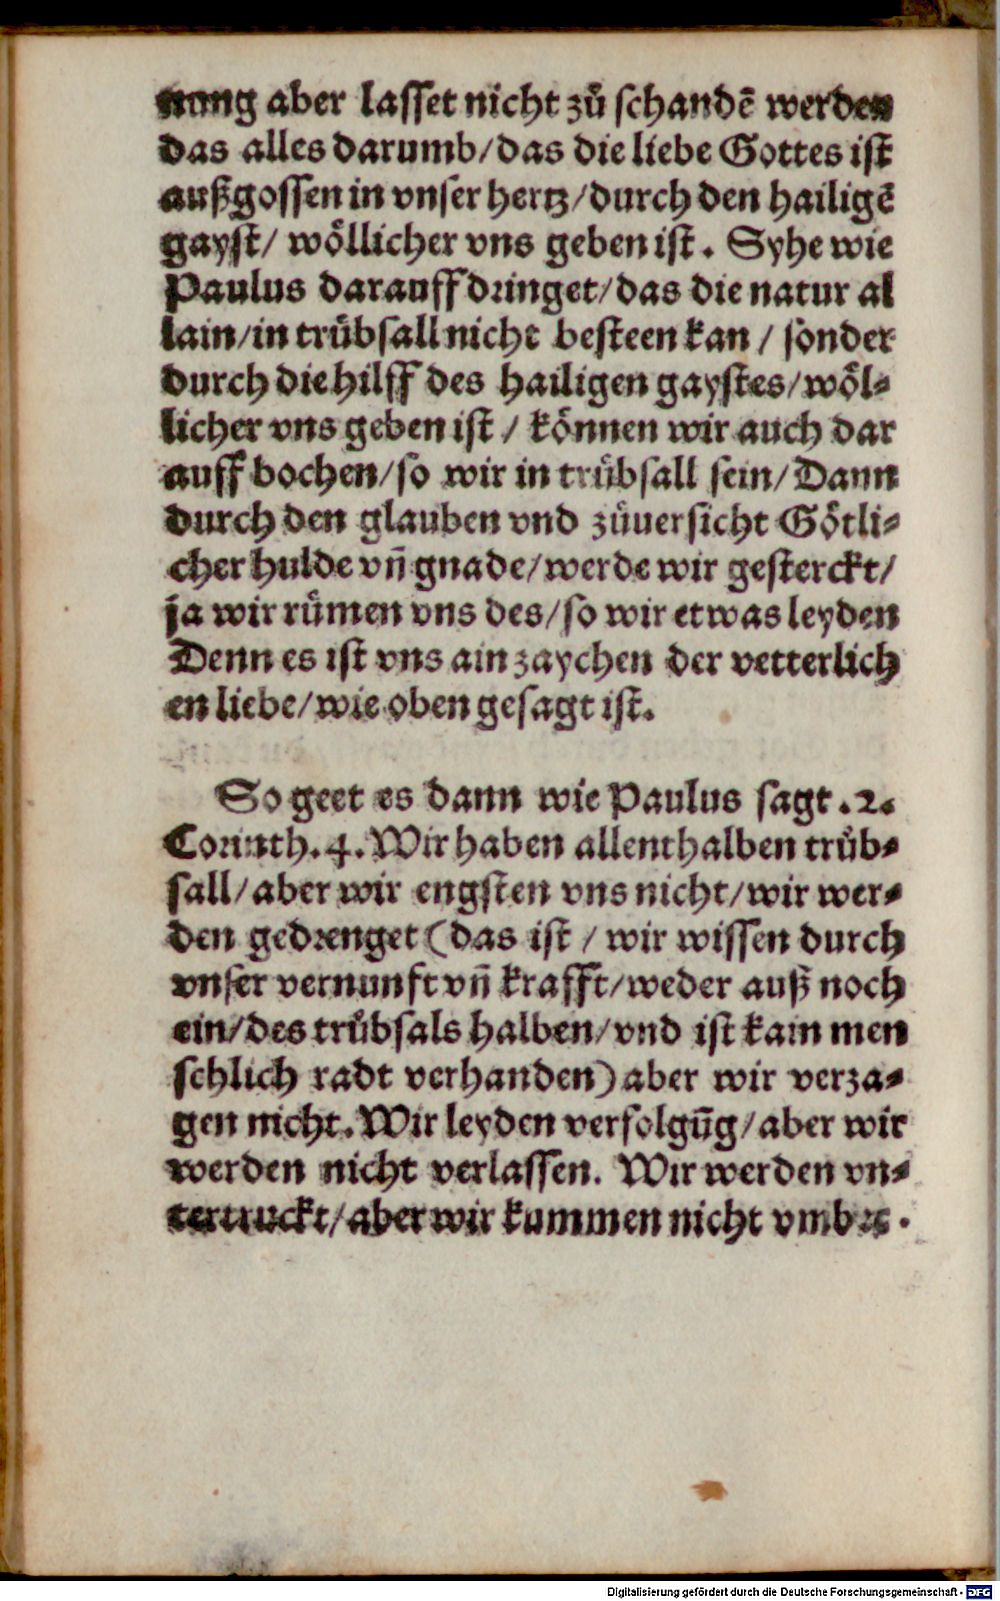 nung aber lasset nicht zuͦ schandē werden
das alles darumb/das die liebe Gottes ist
außgossen in vnser hertz/durch den hailigē
gayst/ woͤllicher vns geben ist. Syhe wie
Paulus darauff dringet/das die natur al
lain/in truͤbsall nicht besteen kan / sonder
durch die hilff des hailigen gaystes/woͤl⸗
licher vns geben ist / koͤnnen wir auch dar
auff bochen/so wir in truͤbsall sein/Dann
durch den glauben vnd zuͦuersicht Goͤtli⸗
cher hulde vn̄ gnade/werde wir gesterckt/
ja wir ruͤmen vns des/so wir etwas leyden
Denn es ist vns ain zaychen der vetterlich
en liebe/wie oben gesagt ist.
So geet es dann wie Paulus sagt .2.
Corinth.4. Wir haben allenthalben truͤb⸗
sall/aber wir engsten vns nicht/wir wer⸗
den gedrenget (das ist / wir wissen durch
vnser vernunft vn̄ krafft/weder auß noch
ein/des truͤbsals halben/vnd ist kain men
schlich radt verhanden) aber wir verza⸗
gen nicht. Wir leyden verfolgūg/aber wir
werden nicht verlassen. Wir werden vn⸗
tertruckt/aber wir kummen nicht vmb ꝛc.
Digitalisierung gefördert durch die Deutsche Forschungsgemeinschaft - DFG